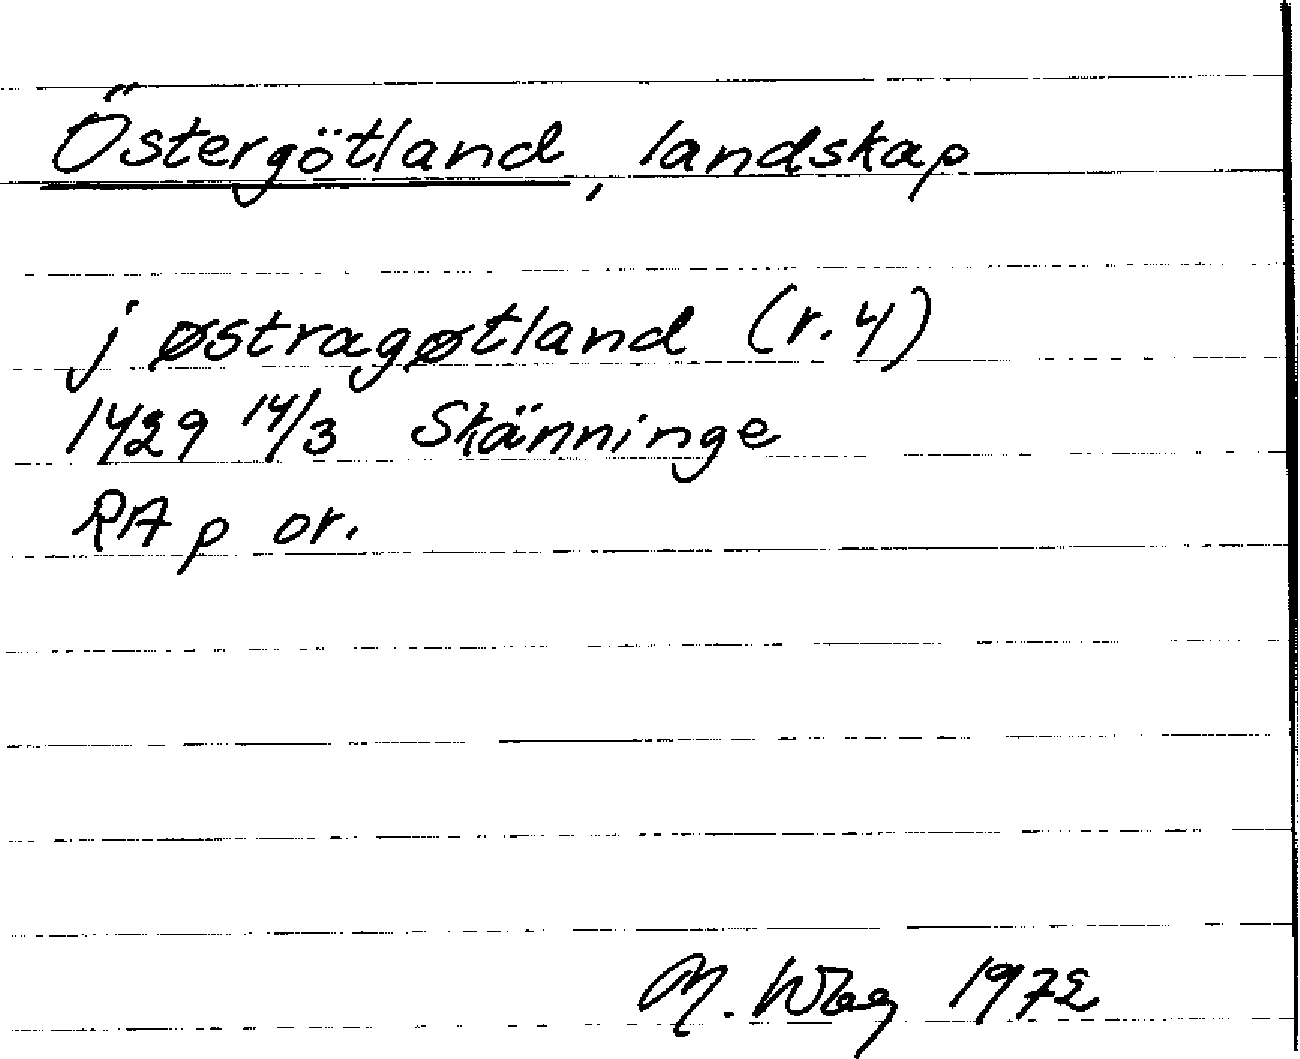 Östergötland, landskap
j østragøtland (r. 4)
1429 14/3 Skänninge
RA p or.
M. 1972